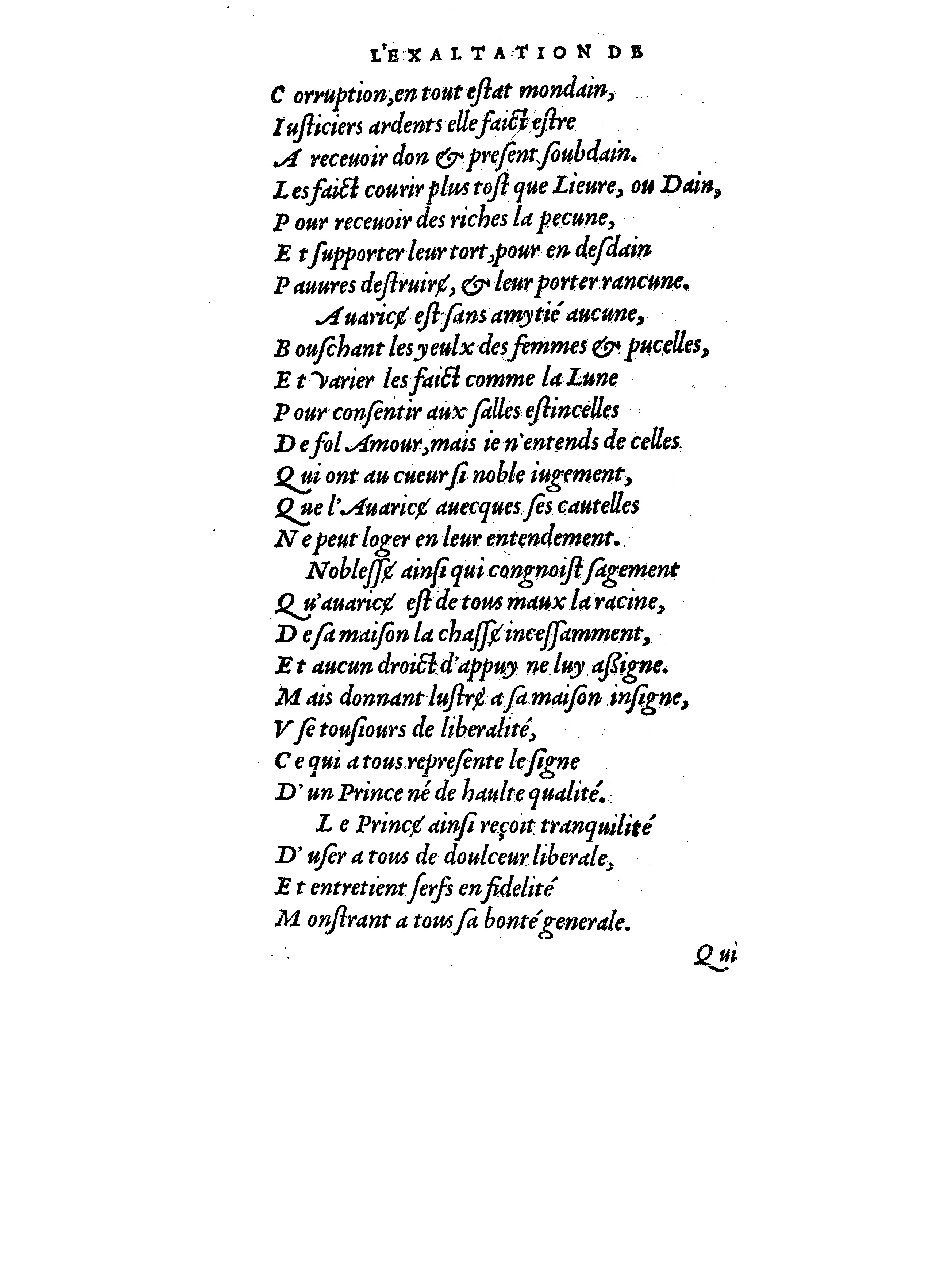 L'EXALTATION DE
Corruption, en tout eſtat mondain,
Iuſticiers ardents elle faict eſtre
A receuoir don & preſent ſoubdain.
Les faict courir plus toſt que Lieure, ou Dain,
Pour receuoir des riches la pecune,
Et ſupporter leur tort, pour en deſdain
Pauures deſtruirɇ, & leur porter rancune.
Auaricɇ eſt ſans amytié aucune,
Bouſchant les yeulx des femmes & pucelles,
Et varier les faict comme la Lune
Pour conſentir aux ſalles eſtincelles
De fol Amour, mais ie n'entends de celles
Qui ont au cueur ſi noble iugement,
Que l'Auaricɇ auecques ſes cautelles
Ne peut loger en leur entendement.
Nobleſſɇ ainſi qui congnoiſt ſagement
Qu'auaricɇ eſt de tous maux la racine,
De ſa maiſon la chaſſɇ inceſſamment,
Et aucun droict d'appuy ne luy aſsigne.
Mais donnant luſtrɇ a ſa maiſon inſigne,
Vſe touſiours de liberalité,
Ce qui a tous repreſente le ſigne
D'un Prince né de haulte qualité.
Le Princɇ ainſi reçoit tranquilité
D'uſer a tous de doulceur liberale,
Et entretient ſerfs en fidelité
Monſtrant a tous ſa bonté generale.
Qui